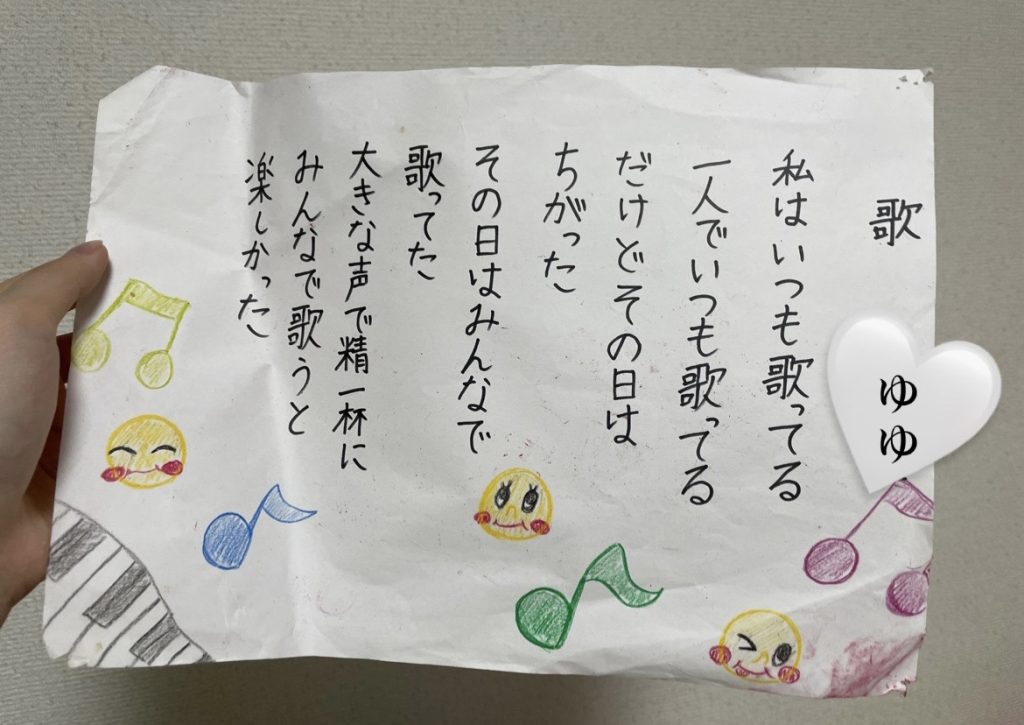 歌
ゆゆ
私はいつも歌ってる
一人でいつも歌ってる
だけどその日は
ちがった
その日はみんなで
歌ってた
大きな声で精一杯に
みんなで歌うと
楽しかった